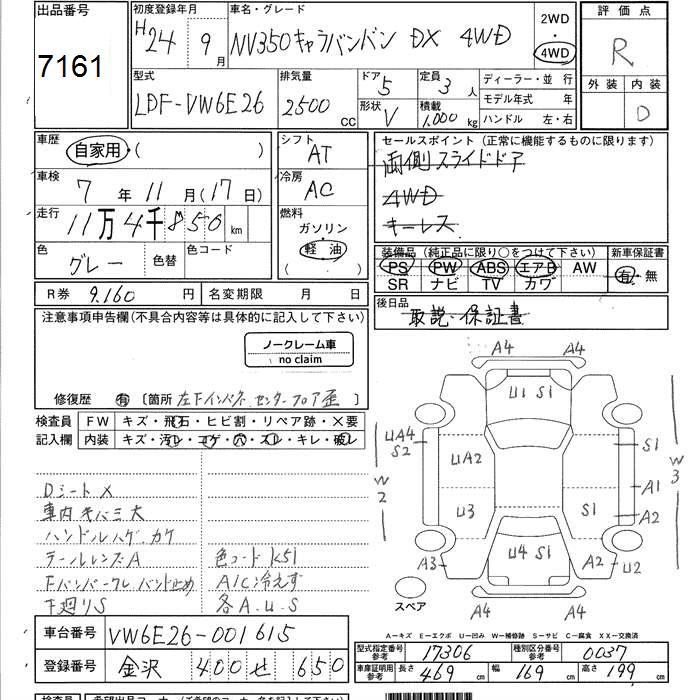 出品番号 7161
初度登録年月 H24年9月
車名・グレード NV350キャラバンバン DX 4WD
2WD 4WD
評価点 R
外装 内装 D
型式 LDF-VW6E26
排気量 2500 CC
ドア 5 形状 V
定員 3人 積載 1,000 kg
ディーラー・並行
モデル年式 年
ハンドル 左・右
車歴 自家用 ( )
車検 7年11月(17日)
走行 11万4千850 km
色 グレー 色替 色コード
シフト AT
冷房 AC
燃料 ガソリン 軽油 ( )
セールスポイント(正常に機能するものに限ります)
両側スライドドア
4WD
キーレス
装備品(純正品に限り○をつけて下さい) 新車保証書
PS PW ABS エアB AW 有・無
SR ナビ TV カワ
R券 9,160円 名変期限 月 日
後日品 取説・保証書
注意事項申告欄(不具合内容等は具体的に記入して下さい)
ノークレーム車
no claim
修復歴 有 〔箇所 左Fインパネ.センターフロア歪〕
検査員 FW キズ・飛石・ヒビ割・リペア跡・×要
記入欄 内装 キズ・汚レ・コゲ・穴・スレ・キレ・破レ
Dシート X
車内キバミ大
ハンドルハゲ.カケ
テールレンズA 色コード K51
Fバンパークレ バンド止め A/C冷えず
下廻りS 各A.U.S
A4 A4
U1 S1
UA4 S2 UA2 S1
W2 U3 S1 A1 A2 W3
A3 U4 S1 A2 U2
A4 A4
スペア
A-キズ E-エクボ U-凹み W-補修跡 S-サビ C-腐食 XX-交換済
車台番号 VW6E26-001615
登録番号 金沢 400 せ 650
型式指定番号 参考 17306 種別区分番号 参考 0037
車庫証明用 参考 長さ 469cm 幅 169cm 高さ 199cm
検査員